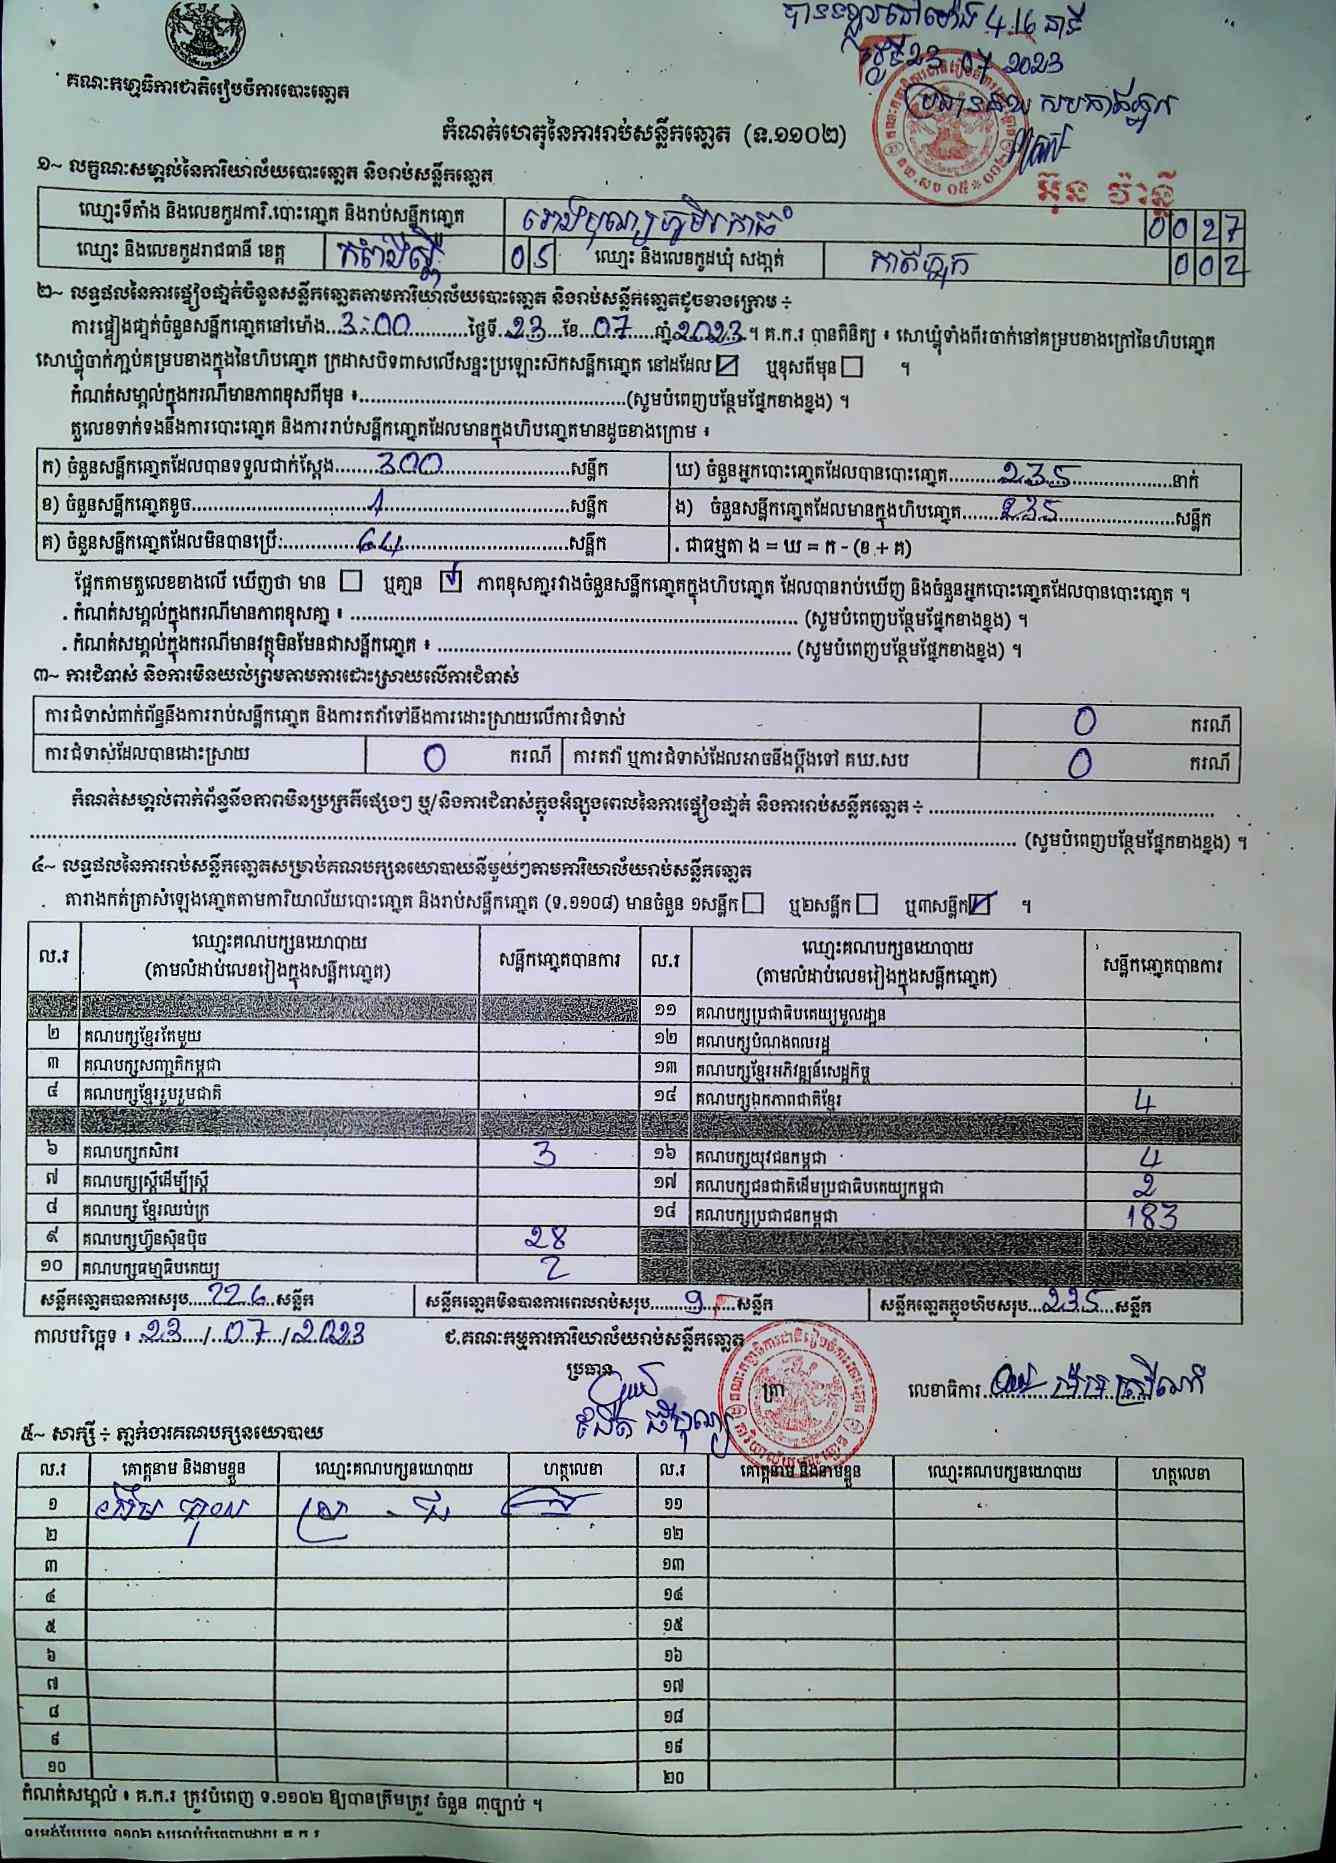 បានទទួលនៅម៉ោង 4.16 នាទី
ថ្ងៃទី 23 07 2023
គណៈកម្មាធិការជាតិរៀបចំការបោះឆ្នោត
កំណត់ហេតុនៃការរាប់សន្លឹកឆ្នោត (ទ.១១០២)
អ៊ុន វ៉ារន្នី
១~ លក្ខណៈសម្គាល់នៃការិយាល័យបោះឆ្នោត និងរាប់សន្លឹកឆ្នោត
ឈ្មោះទីតាំង និងលេខកូដការិ.បោះឆ្នោត និងរាប់សន្លឹកឆ្នោត 0027
ឈ្មោះ និងលេខកូដរាជធានី ខេត្ត កំពង់ស្ពឺ 05 ឈ្មោះ និងលេខកូដឃុំ សង្កាត់ កាត់ភ្លុក 002
២~ លទ្ធផលនៃការផ្ទៀងផ្ទាត់ចំនួនសន្លឹកឆ្នោតតាមការិយាល័យបោះឆ្នោត និងរាប់សន្លឹកឆ្នោតដូចខាងក្រោម ÷
ការផ្ទៀងផ្ទាត់ចំនួនសន្លឹកឆ្នោតនៅម៉ោង...3:00...ថ្ងៃទី..23..ខែ..07..ឆ្នាំ2023។ គ.ក.រ បានពិនិត្យ ៖ សោឃ្នុំទាំងពីរចាក់នៅគម្របខាងក្រៅនៃហិបឆ្នោត
សោឃ្នុំចាក់ភ្ជាប់គម្របខាងក្នុងនៃហិបឆ្នោត ក្រដាសបិទពាសលើសន្ទះប្រឡោះស៊កសន្លឹកឆ្នោត នៅដដែល ☑ ឬខុសពីមុន ☐ ។
កំណត់សម្គាល់ក្នុងករណីមានភាពខុសពីមុន ៖..........(សូមបំពេញបន្ថែមផ្នែកខាងខ្នង) ។
តួលេខទាក់ទងនឹងការបោះឆ្នោត និងការរាប់សន្លឹកឆ្នោតដែលមានក្នុងហិបឆ្នោតមានដូចខាងក្រោម ៖
ក) ចំនួនសន្លឹកឆ្នោតដែលបានទទួលជាក់ស្តែង...300...សន្លឹក ឃ) ចំនួនអ្នកបោះឆ្នោតដែលបានបោះឆ្នោត...235...នាក់
ខ) ចំនួនសន្លឹកឆ្នោតខូច...1...សន្លឹក ង) ចំនួនសន្លឹកឆ្នោតដែលមានក្នុងហិបឆ្នោត...235...សន្លឹក
គ) ចំនួនសន្លឹកឆ្នោតដែលមិនបានប្រើ:...64...សន្លឹក . ជាធម្មតា ង = ឃ = ក - (ខ + គ)
ផ្អែកតាមតួលេខខាងលើ ឃើញថា មាន ☐ ឬគ្មាន ☑ ភាពខុសគ្នារវាងចំនួនសន្លឹកឆ្នោតក្នុងហិបឆ្នោត ដែលបានរាប់ឃើញ និងចំនួនអ្នកបោះឆ្នោតដែលបានបោះឆ្នោត ។
. កំណត់សម្គាល់ក្នុងករណីមានភាពខុសគ្នា ៖ .......... (សូមបំពេញបន្ថែមផ្នែកខាងខ្នង) ។
. កំណត់សម្គាល់ក្នុងករណីមានវត្ថុមិនមែនជាសន្លឹកឆ្នោត ៖ .......... (សូមបំពេញបន្ថែមផ្នែកខាងខ្នង) ។
៣~ ការជំទាស់ និងការមិនយល់ព្រមតាមការដោះស្រាយលើការជំទាស់
ការជំទាស់ពាក់ព័ន្ធនឹងការរាប់សន្លឹកឆ្នោត និងការតវ៉ាទៅនឹងការដោះស្រាយលើការជំទាស់ 0 ករណី
ការជំទាស់ដែលបានដោះស្រាយ 0 ករណី ការតវ៉ា ឬការជំទាស់ដែលអាចនឹងប្តឹងទៅ គឃ.សប 0 ករណី
កំណត់សម្គាល់ពាក់ព័ន្ធនឹងភាពមិនប្រក្រតីផ្សេងៗ ឬ/និងការជំទាស់ក្នុងអំឡុងពេលនៃការផ្ទៀងផ្ទាត់ និងការរាប់សន្លឹកឆ្នោត ÷ ..........
.......... (សូមបំពេញបន្ថែមផ្នែកខាងខ្នង) ។
៤~ លទ្ធផលនៃការរាប់សន្លឹកឆ្នោតសម្រាប់គណបក្សនយោបាយនីមួយៗតាមការិយាល័យរាប់សន្លឹកឆ្នោត
តារាងកត់ត្រាសំឡេងឆ្នោតតាមការិយាល័យបោះឆ្នោត និងរាប់សន្លឹកឆ្នោត (ទ.១១០៨) មានចំនួន ១សន្លឹក ☐ ឬ២សន្លឹក ☐ ឬ៣សន្លឹក ☑ ។
ល.រ ឈ្មោះគណបក្សនយោបាយ (តាមលំដាប់លេខរៀងក្នុងសន្លឹកឆ្នោត) សន្លឹកឆ្នោតបានការ ល.រ ឈ្មោះគណបក្សនយោបាយ (តាមលំដាប់លេខរៀងក្នុងសន្លឹកឆ្នោត) សន្លឹកឆ្នោតបានការ
១១ គណបក្សប្រជាធិបតេយ្យមូលដ្ឋាន
២ គណបក្សខ្មែរតែមួយ ១២ គណបក្សបំណងពលរដ្ឋ
៣ គណបក្សសញ្ជាតិកម្ពុជា ១៣ គណបក្សខ្មែរអភិវឌ្ឍន៍សេដ្ឋកិច្ច
៤ គណបក្សខ្មែររួបរួមជាតិ ១៤ គណបក្សឯកភាពជាតិខ្មែរ 4
៦ គណបក្សកសិករ 3 ១៦ គណបក្សយុវជនកម្ពុជា 4
៧ គណបក្សស្ត្រីដើម្បីស្ត្រី ១៧ គណបក្សជនជាតិដើមប្រជាធិបតេយ្យកម្ពុជា 2
៨ គណបក្ស ខ្មែរឈប់ក្រ ១៨ គណបក្សប្រជាជនកម្ពុជា 183
៩ គណបក្សហ្វ៊ុនស៊ិនប៉ិច 28
១០ គណបក្សធម្មាធិបតេយ្យ 2
សន្លឹកឆ្នោតបានការសរុប...226...សន្លឹក សន្លឹកឆ្នោតមិនបានការពេលរាប់សរុប...9...សន្លឹក សន្លឹកឆ្នោតក្នុងហិបសរុប...235...សន្លឹក
កាលបរិច្ឆេទ ៖ 23/07/2023 ជ.គណៈកម្មការការិយាល័យរាប់សន្លឹកឆ្នោត
ប្រធាន ត្រា លេខាធិការ
៥~ សាក្សី ÷ ភ្នាក់ងារគណបក្សនយោបាយ
ល.រ គោត្តនាម និងនាមខ្លួន ឈ្មោះគណបក្សនយោបាយ ហត្ថលេខា ល.រ គោត្តនាម និងនាមខ្លួន ឈ្មោះគណបក្សនយោបាយ ហត្ថលេខា
១ ១១
២ ១២
៣ ១៣
៤ ១៤
៥ ១៥
៦ ១៦
៧ ១៧
៨ ១៨
៩ ១៩
១០ ២០
កំណត់សម្គាល់ ៖ គ.ក.រ ត្រូវបំពេញ ទ.១១០២ ឱ្យបានត្រឹមត្រូវ ចំនួន ៣ច្បាប់ ។